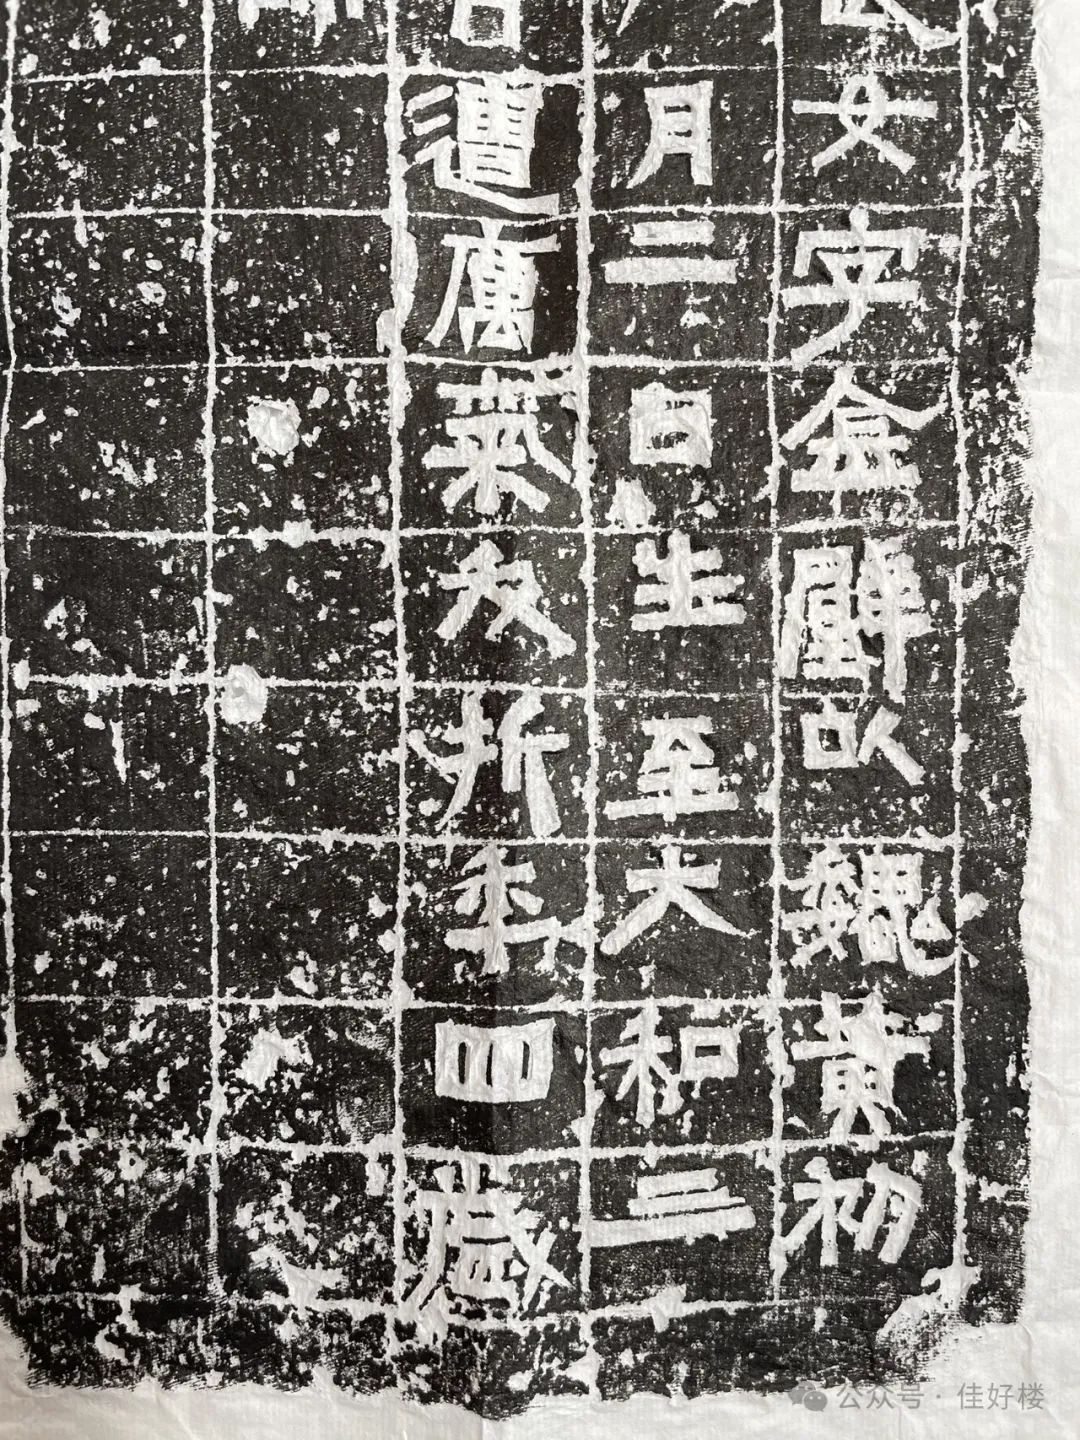 女字金以魏黄初
月二日生至大和三
遭折年四歲
公众号 · 佳好楼